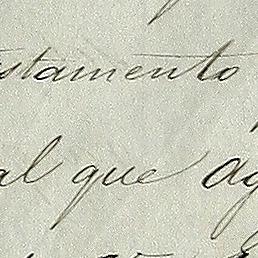 stamento
al que